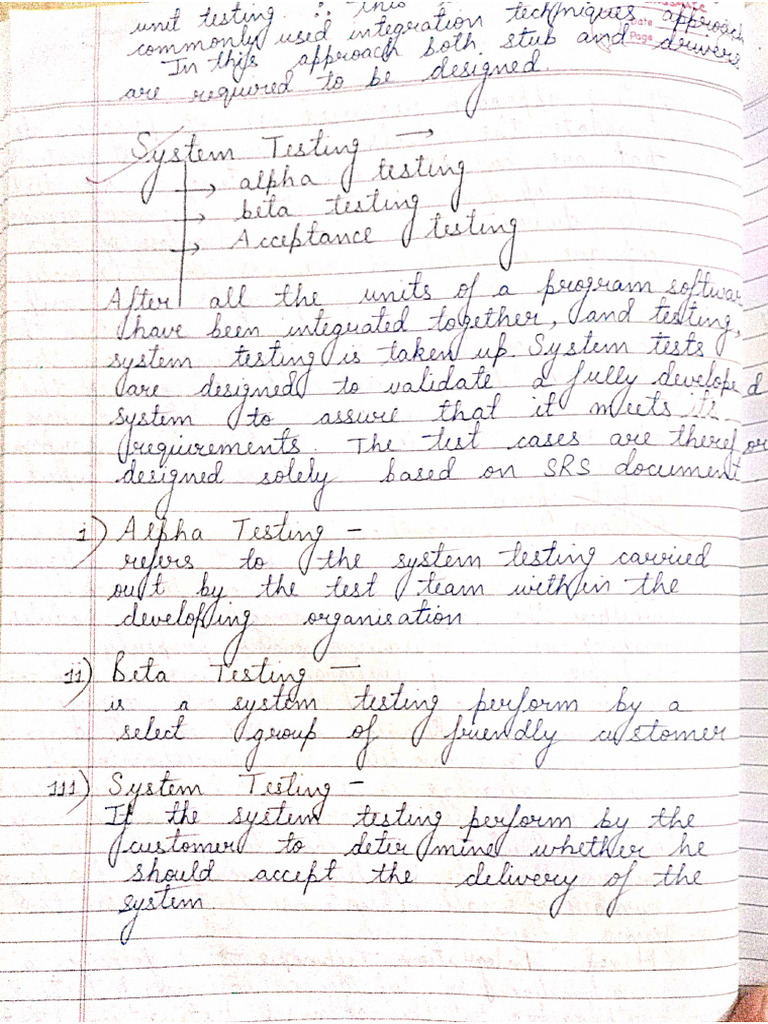 unit testing. ∴ this
commonly used integration techniques approach
In this approach both stub and drivers
are required to be designed.
Date
Page
System Testing →
→ alpha testing
→ beta testing
→ Acceptance testing
After all the units of a program softwar
have been integrated together, and testing,
system testing is taken up. System tests
are designed to validate a fully developed
system to assure that it meets its
requirements. The test cases are therefor
designed solely based on SRS document
i) Alpha Testing -
refers to the system testing carried
out by the test team within the
developing organisation
ii) Beta Testing -
is a system testing perform by a
select group of friendly customer
iii) System Testing -
If the system testing perform by the
customer to determine whether he
should accept the delivery of the
system